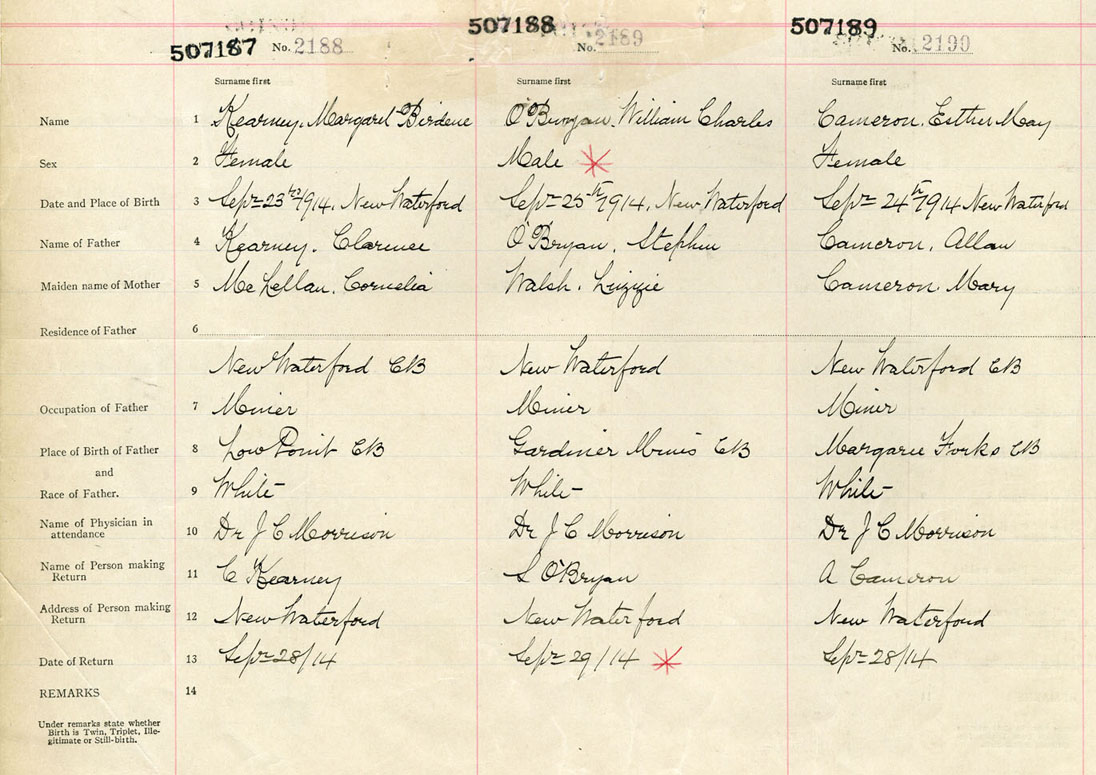 507187 No. 2188
507188 No. 2189
507189 No. 2190
Surname first Surname first Surname first
Name 1 Kearney, Margaret Birdene O'Bryan, William Charles Cameron, Esther May
Sex 2 Female Male Female
Date and Place of Birth 3 Sept 23rd 1914, New Waterford Sept 25th 1914, New Waterford Sept 24th 1914 New Waterford
Name of Father 4 Kearney, Clarence O'Bryan, Stephen Cameron, Allan
Maiden name of Mother 5 McLellan, Cornelia Walsh, Lizzie Cameron, Mary
Residence of Father 6
New Waterford CB New Waterford New Waterford CB
Occupation of Father 7 Miner Miner Miner
Place of Birth of Father 8 Low Point CB Gardiner Mines CB Margaree Forks CB
and
Race of Father. 9 White White White
Name of Physician in
attendance 10 Dr J C Morrison Dr J C Morrison Dr J C Morrison
Name of Person making
Return 11 C Kearney S O'Bryan A Cameron
Address of Person making
Return 12 New Waterford New Waterford New Waterford
Date of Return 13 Sept 28/14 Sept 29/14 Sept 28/14
REMARKS 14
Under remarks state whether
Birth is Twin, Triplet, Ille-
gitimate or Still-birth.